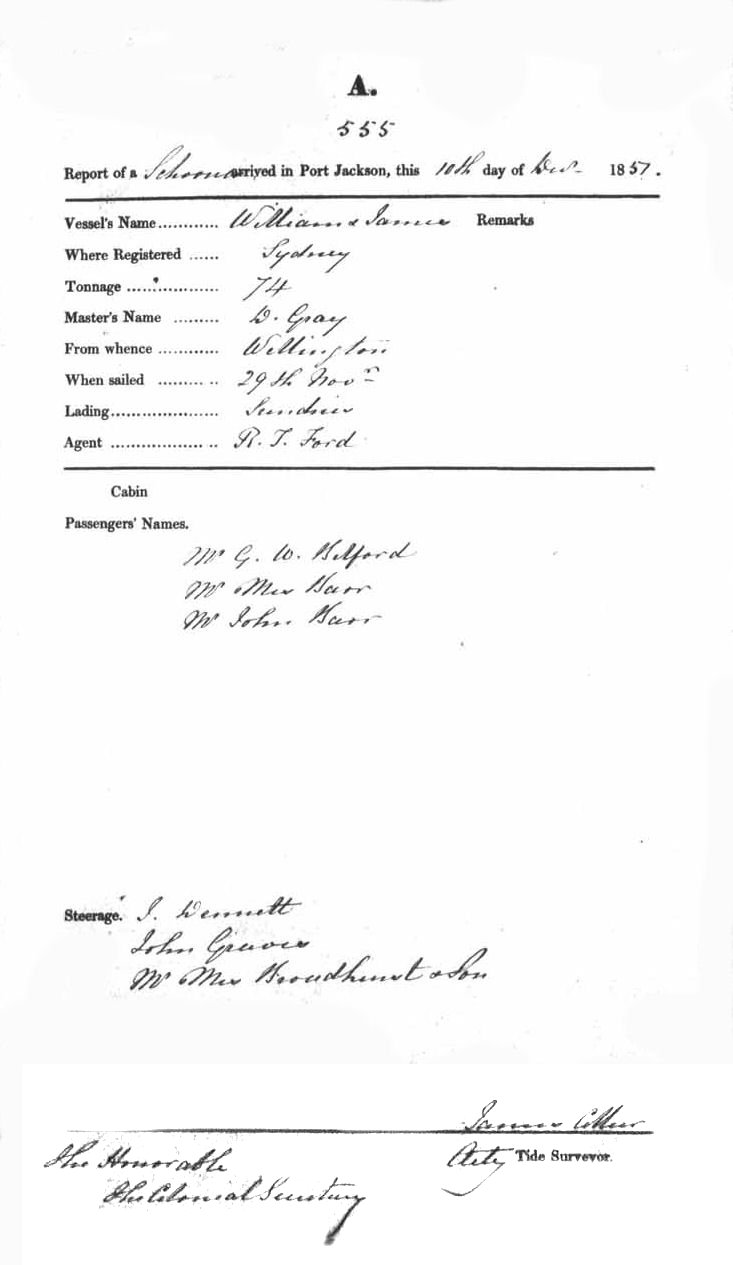 A.
555
Report of a Schooner arrived in Port Jackson, this 10th day of Decr 1851.
Vessel's Name............ William & James Remarks
Where Registered ...... Sydney
Tonnage .................. 74
Master's Name ......... D. Gray
From whence ............ Wellington
When sailed ............ 29th Novr
Lading..................... Sundries
Agent ..................... R. T. Ford
Cabin
Passengers' Names.
Mr G. W. Belford
Mr Mrs Barr
Mr John Barr
Steerage. J. Dennett
John Greaves
Mr Mrs Broadhurst & Son
James
Actg Tide Surveyor.
The Honorable
The Colonial Secretary